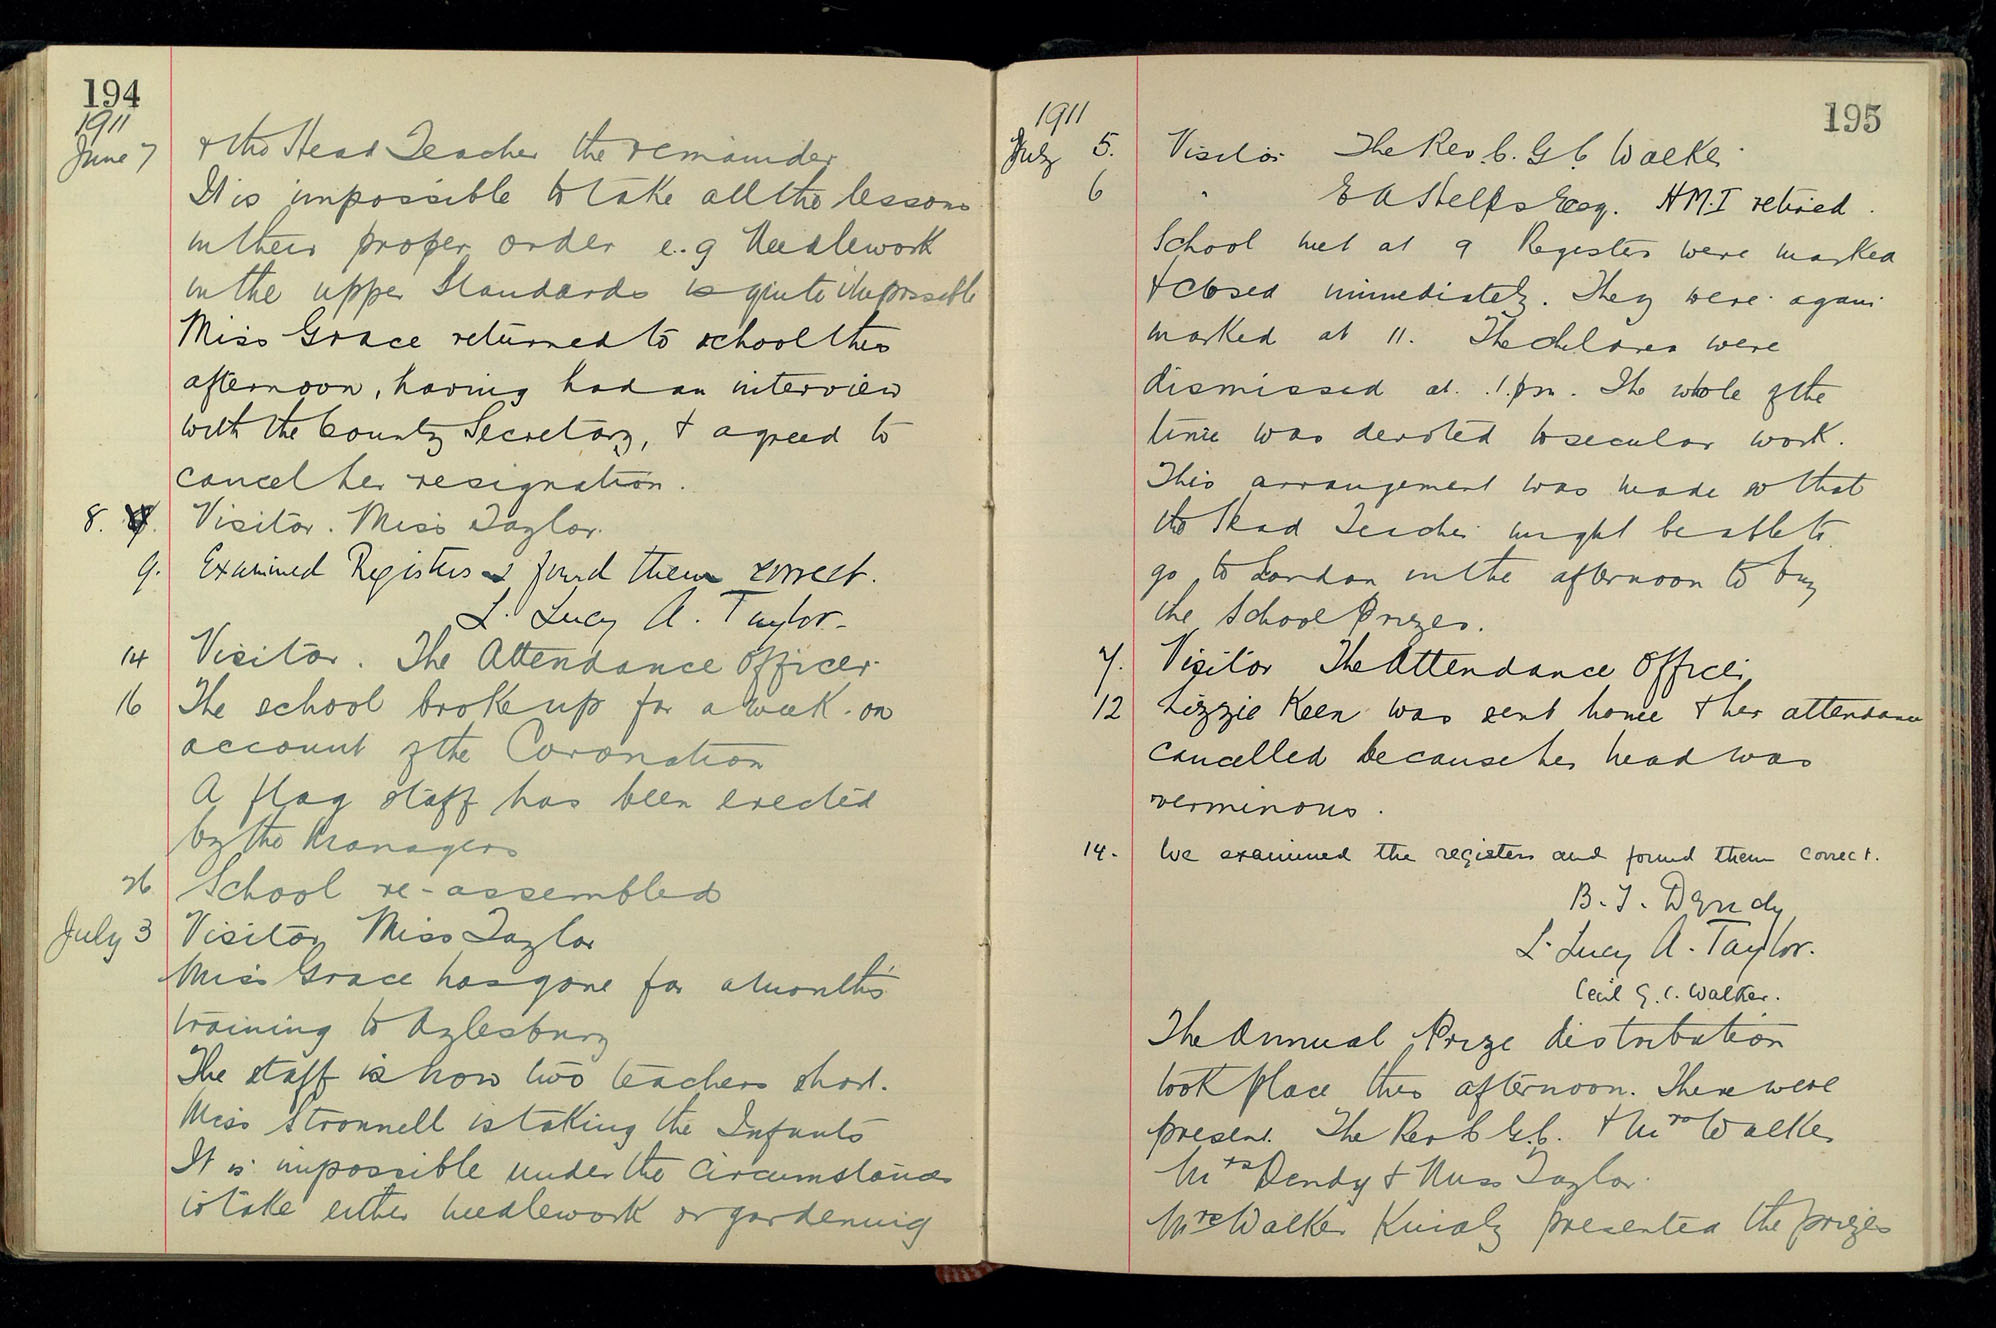 194
1911
June 7 & the Head Teacher the remainder
It is impossible to take all the lessons
in their proper order e.g Needlework
in the upper Standards is quite impossible
Miss Grace returned to school this
afternoon, having had an interview
with the County Secretary, & agreed to
cancel her resignation.
8. Visitor. Miss Taylor.
9. Examined Registers & found them correct.
L. Lucy A. Taylor.
14 Visitor. The Attendance Officer.
16 The school broke up for a week on
account of the Coronation
A flag staff has been erected
by the Managers
26 School re-assembled
July 3 Visitor Miss Taylor
Miss Grace has gone for a month's
training to Aylesbury
The staff is now two teachers short.
Miss Stronnell is taking the Infants
It is impossible under the circumstances
to take either needlework or gardening
195
1911
July 5. Visitor The Rev. C. G. C Walker
6 " E A Helps Esq. H.M.I retired.
School met at 9 Registers were marked
& closed immediately. They were again
marked at 11. The children were
dismissed at 1.pm. The whole of the
time was devoted to secular work.
This arrangement was made so that
the Head Teacher might be able to
go to London in the afternoon to buy
the School Prizes.
7. Visitor The Attendance Officer
12 Lizzie Keen was sent home & her attendance
cancelled because her head was
verminous.
14. We examined the registers and found them correct.
B. T. Dendy
L. Lucy A. Taylor.
Cecil G. C. Walker.
The Annual Prize distribution
took place this afternoon. There were
present. The Rev C G.C. & Mrs Walker
Mrs Dendy & Miss Taylor.
Mrs Walker Kindly presented the prizes